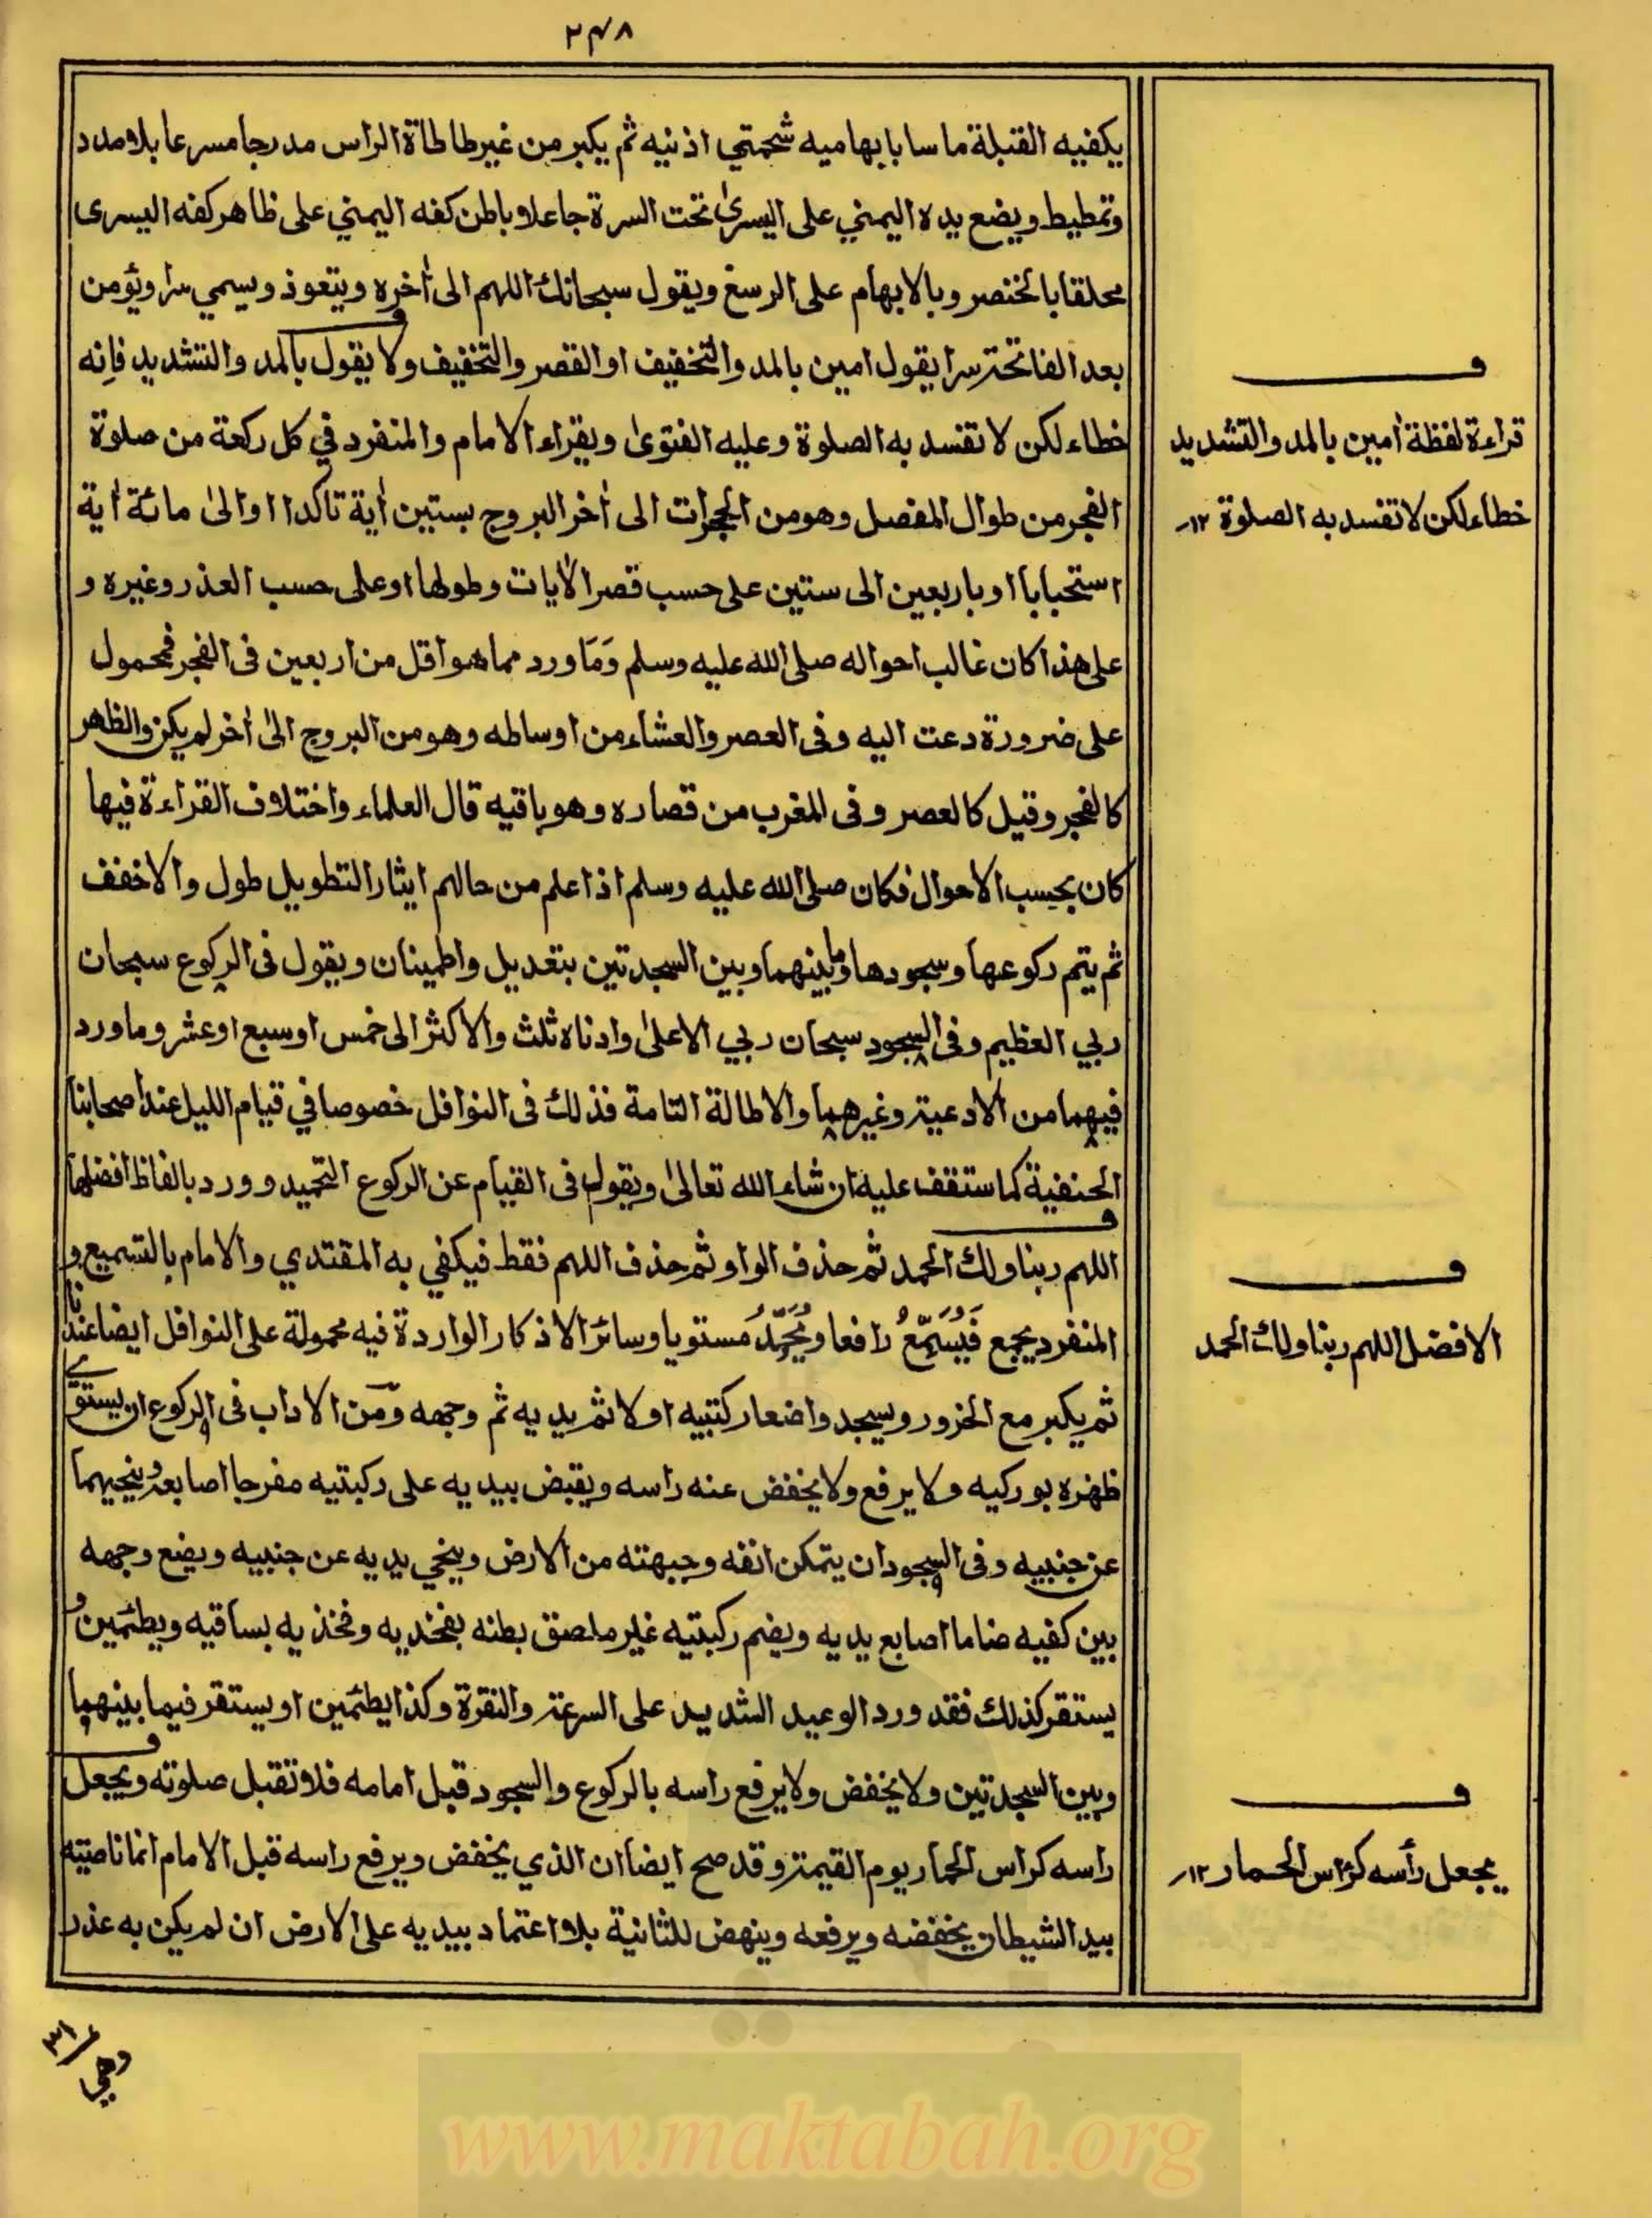 ٢٣٨
بكفيه القبلة ماسا بابهاميه شحمتي اذنيه ثم يكبر من غير طاطاة الراس مدرجا مسرعا بلا مدد
وتمطيط ويضع يده اليمني على اليسرىٰ تحت السرة جاعلا باطن كفه اليمني على ظاهر كفه اليسرى
محلقا بالخنصر وبالابهام على الرسغ ويقول سبحانك اللهم الى اٰخره ويتعوذ ويسمي سرا ويؤمن
بعد الفاتحة سرا يقول امين بالمد والتخفيف او القصر والتخفيف ولا يقول بالمد والتشديد فانه
خطاء لكن لا تفسد به الصلوة وعليه الفتوىٰ ويقراء الامام والمنفرد في كل ركعة من صلوة
الفجر من طوال المفصل وهو من الحجرات الى اٰخر البروج بستين اٰية تاكدا او الىٰ مائة اٰية
استحبابا او باربعين الى ستين على حسب قصر الاٰيات وطولها او على حسب العذر وغيره و
على هذا كان غالب احواله صلى الله عليه وسلم وَمَا ورد مما هو اقل من اربعين فى الفجر فمحمول
على ضرورة دعت اليه وفى العصر والعشاء من اوساطه وهو من البروج الىٰ اٰخر لم يكن والظهر
كالفجر وقيل كالعصر وفى المغرب من قصاره وهو باقيه قال العلماء واختلاف القراءة فيها
كان بحسب الاحوال فكان صلى الله عليه وسلم اذا علم من حالهم ايثار التطويل طول والا خفف
ثم يتم ركوعها وسجودها وما بينهما وبين السجدتين بتعديل واطمينان ويقول فى الركوع سبحان
ربي العظيم وفى السجود سبحان ربي الاعلىٰ وادناه ثلث والاكثر الى خمس او سبع او عشر وما ورد
فيهما من الادعية وغيرهما والاطالة التامة فذلك فى النوافل خصوصا في قيام الليل عند اصحابنا
الحنفية كما ستقف عليه ان شاء الله تعالىٰ ويقول فى القيام عن الركوع التحميد وورد بالفاظ افضلها
اللهم ربنا ولك الحمد ثم حذف الواو ثم حذف اللهم فقط فيكفي به المقتدي والامام بالتسميع و
المنفرد يجمع فَيُسَمِّعُ رافعا ويُحَمِّدُ مستويا وسائر الاذكار الواردة فيه محمولة على النوافل ايضا عندنا
ثم يكبر مع الخرور ويسجد واضعا ركبتيه اولا ثم يديه ثم وجهه ومن الاداب فى الركوع ان يستوي
ظهره بوركيه ولا يرفع ولا يخفض عنه راسه ويقبض بيديه على ركبتيه مفرجا اصابعه وينحيهما
عن جنبيه وفى السجود ان يتمكن انفه وجبهته من الارض وينحي يديه عن جنبيه ويضع وجهه
بين كفيه ضاما اصابع يديه ويضم ركبتيه غير ملصق بطنه بفخذيه وفخذيه بساقيه ويطئمين و
يستقر كذلك فقد ورد الوعيد الشديد على السرعة والنقرة وكذا يطئمين او يستقر فيما بينهما
وبين السجدتين ولا يخفض ولا يرفع راسه بالركوع والسجود قبل امامه فلا تقبل صلوته ويجعل
راسه كراس الحمار يوم القيمة وقد صح ايضا ان الذي يخفض ويرفع راسه قبل الامام انما ناصيته
بيد الشيطان يخفضه ويرفعه وينهض للثانية بلا اعتماد بيديه على الارض ان لم يكن به عذر
ف
قراءة لفظة اٰمين بالمد والتشديد
خطاء لكن لا تفسد به الصلوة ١٢
ف
الافضل اللهم ربنا ولك الحمد
ف
يجعل رأسه كراس الحمار ١٢
وهي
٣١
www.maktabah.org